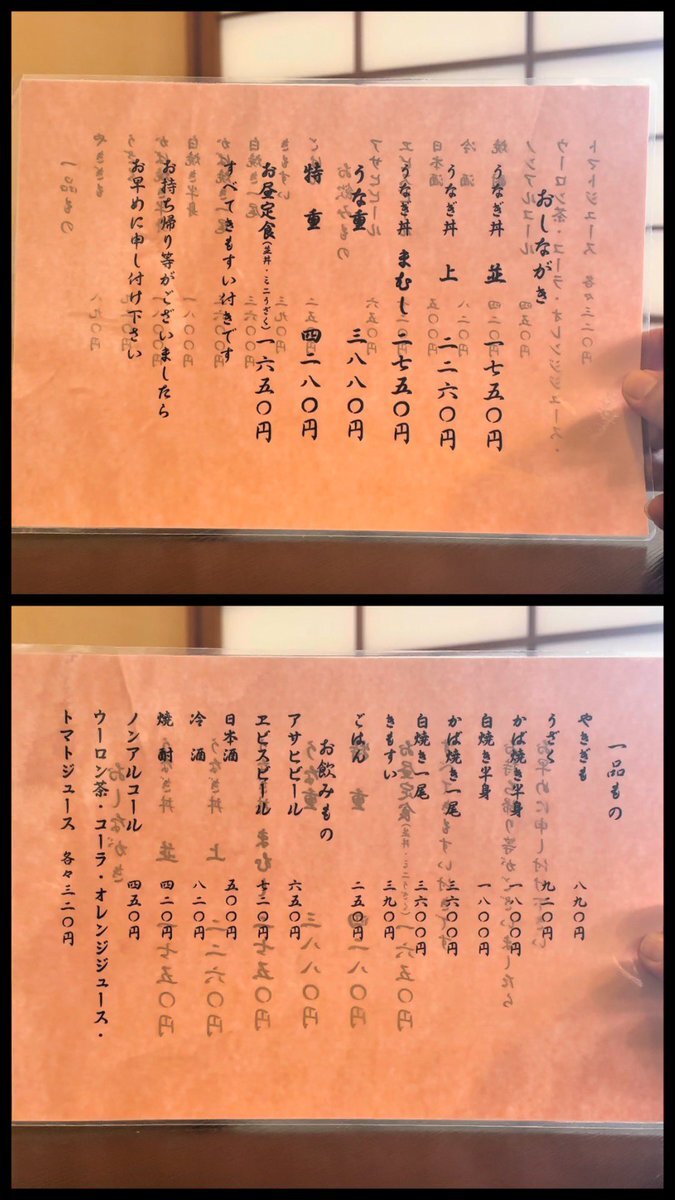 おしながき
うなぎ丼 並 一七五〇円
うなぎ丼 上 二二六〇円
うなぎ丼 まむし 二七五〇円
うな重 三八八〇円
特重 四二八〇円
お昼定食(並丼・ミニうざく) 一六五〇円
すべてきもすい付きです
お持ち帰り等がございましたら
お早めに申し付け下さい
一品もの
やきぎも 八九〇円
うざく 九二〇円
かば焼き半身 一八〇〇円
白焼き半身 一八〇〇円
かば焼き一尾 三六〇〇円
白焼き一尾 三六〇〇円
きもすい 三九〇円
ごはん 二五〇円
お飲みもの
アサヒビール 六五〇円
ヱビスビール 七二〇円
日本酒 五〇〇円
冷酒 八二〇円
焼酎 四二〇円
ノンアルコール 四五〇円
ウーロン茶・コーラ・オレンジジュース・
トマトジュース 各々三二〇円